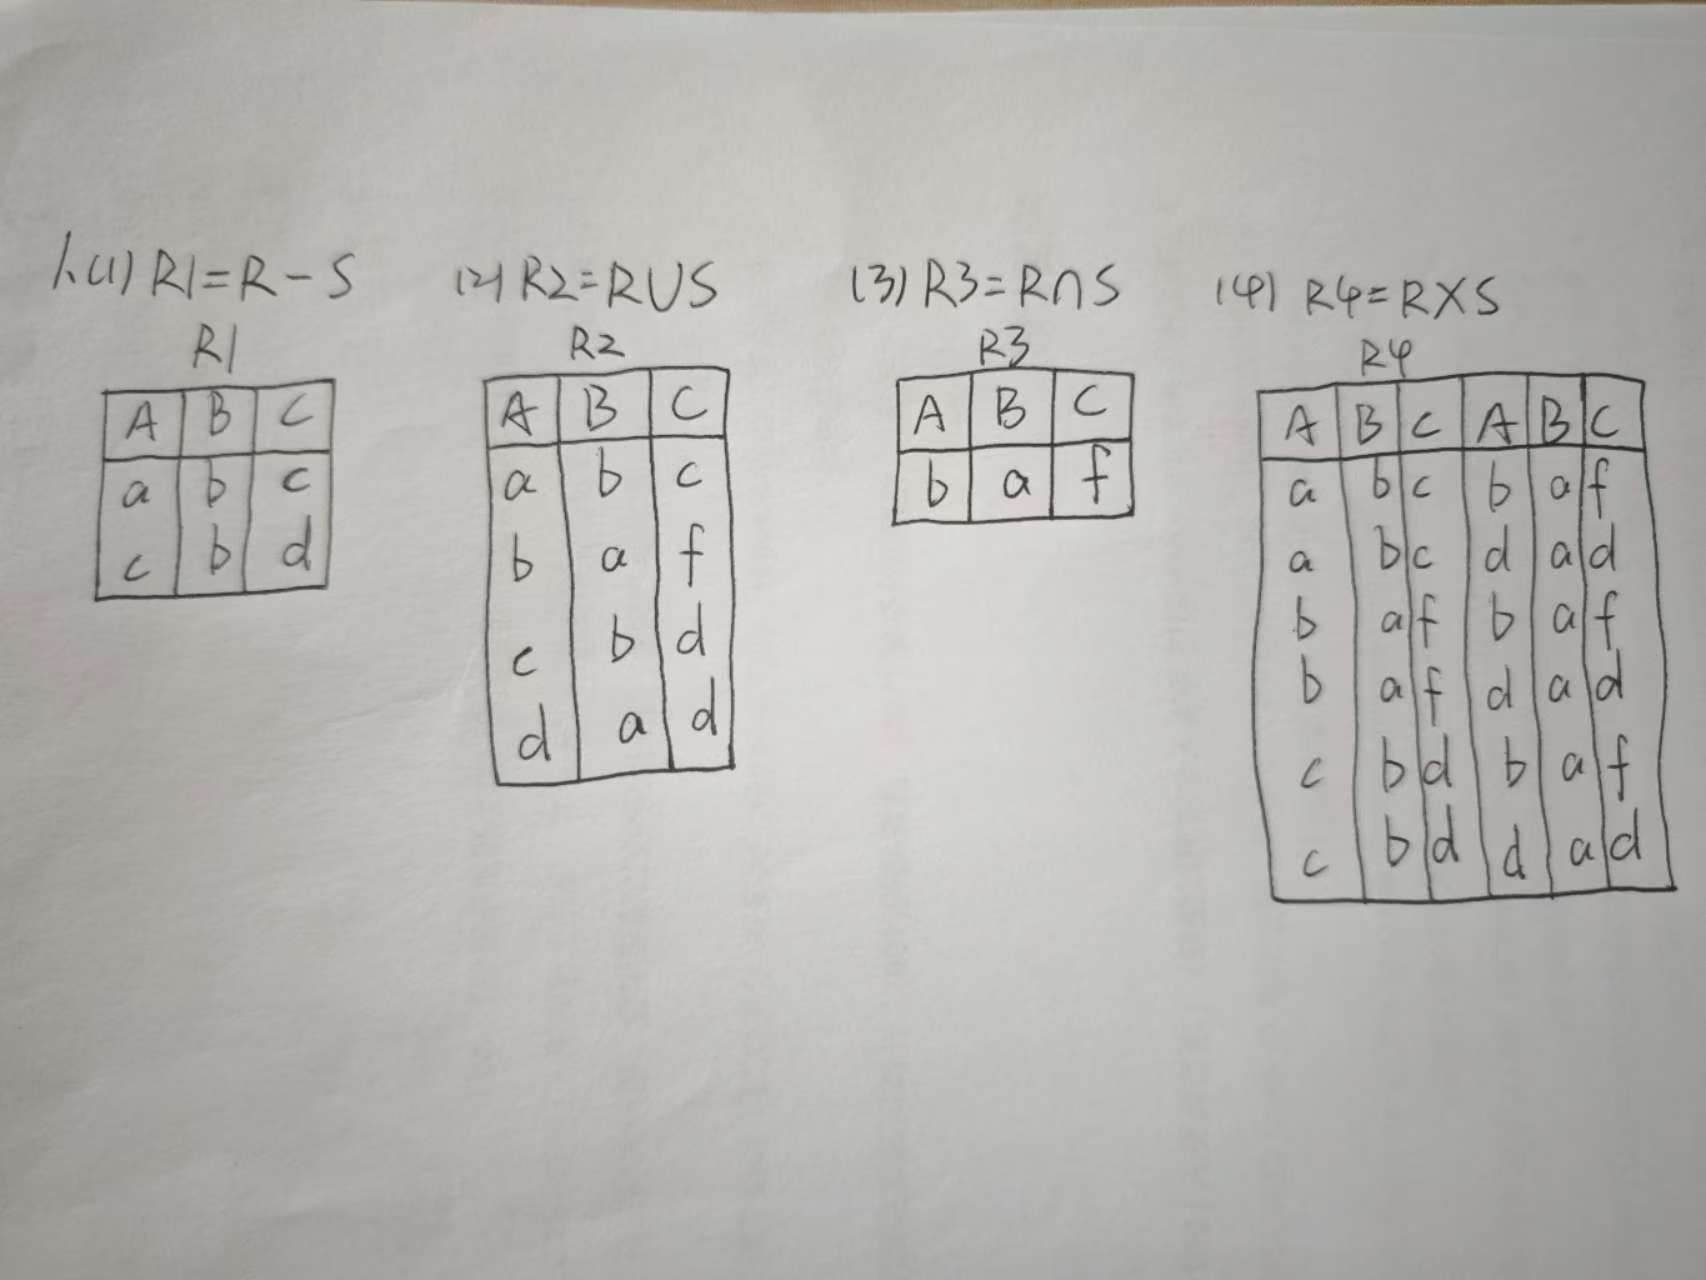 1.(1) R1=R-S
R1
A B C
a b c
c b d
(2) R2=R∪S
R2
A B C
a b c
b a f
c b d
d a d
(3) R3=R∩S
R3
A B C
b a f
(4) R4=R×S
R4
A B C A B C
a b c b a f
a b c d a d
b a f b a f
b a f d a d
c b d b a f
c b d d a d